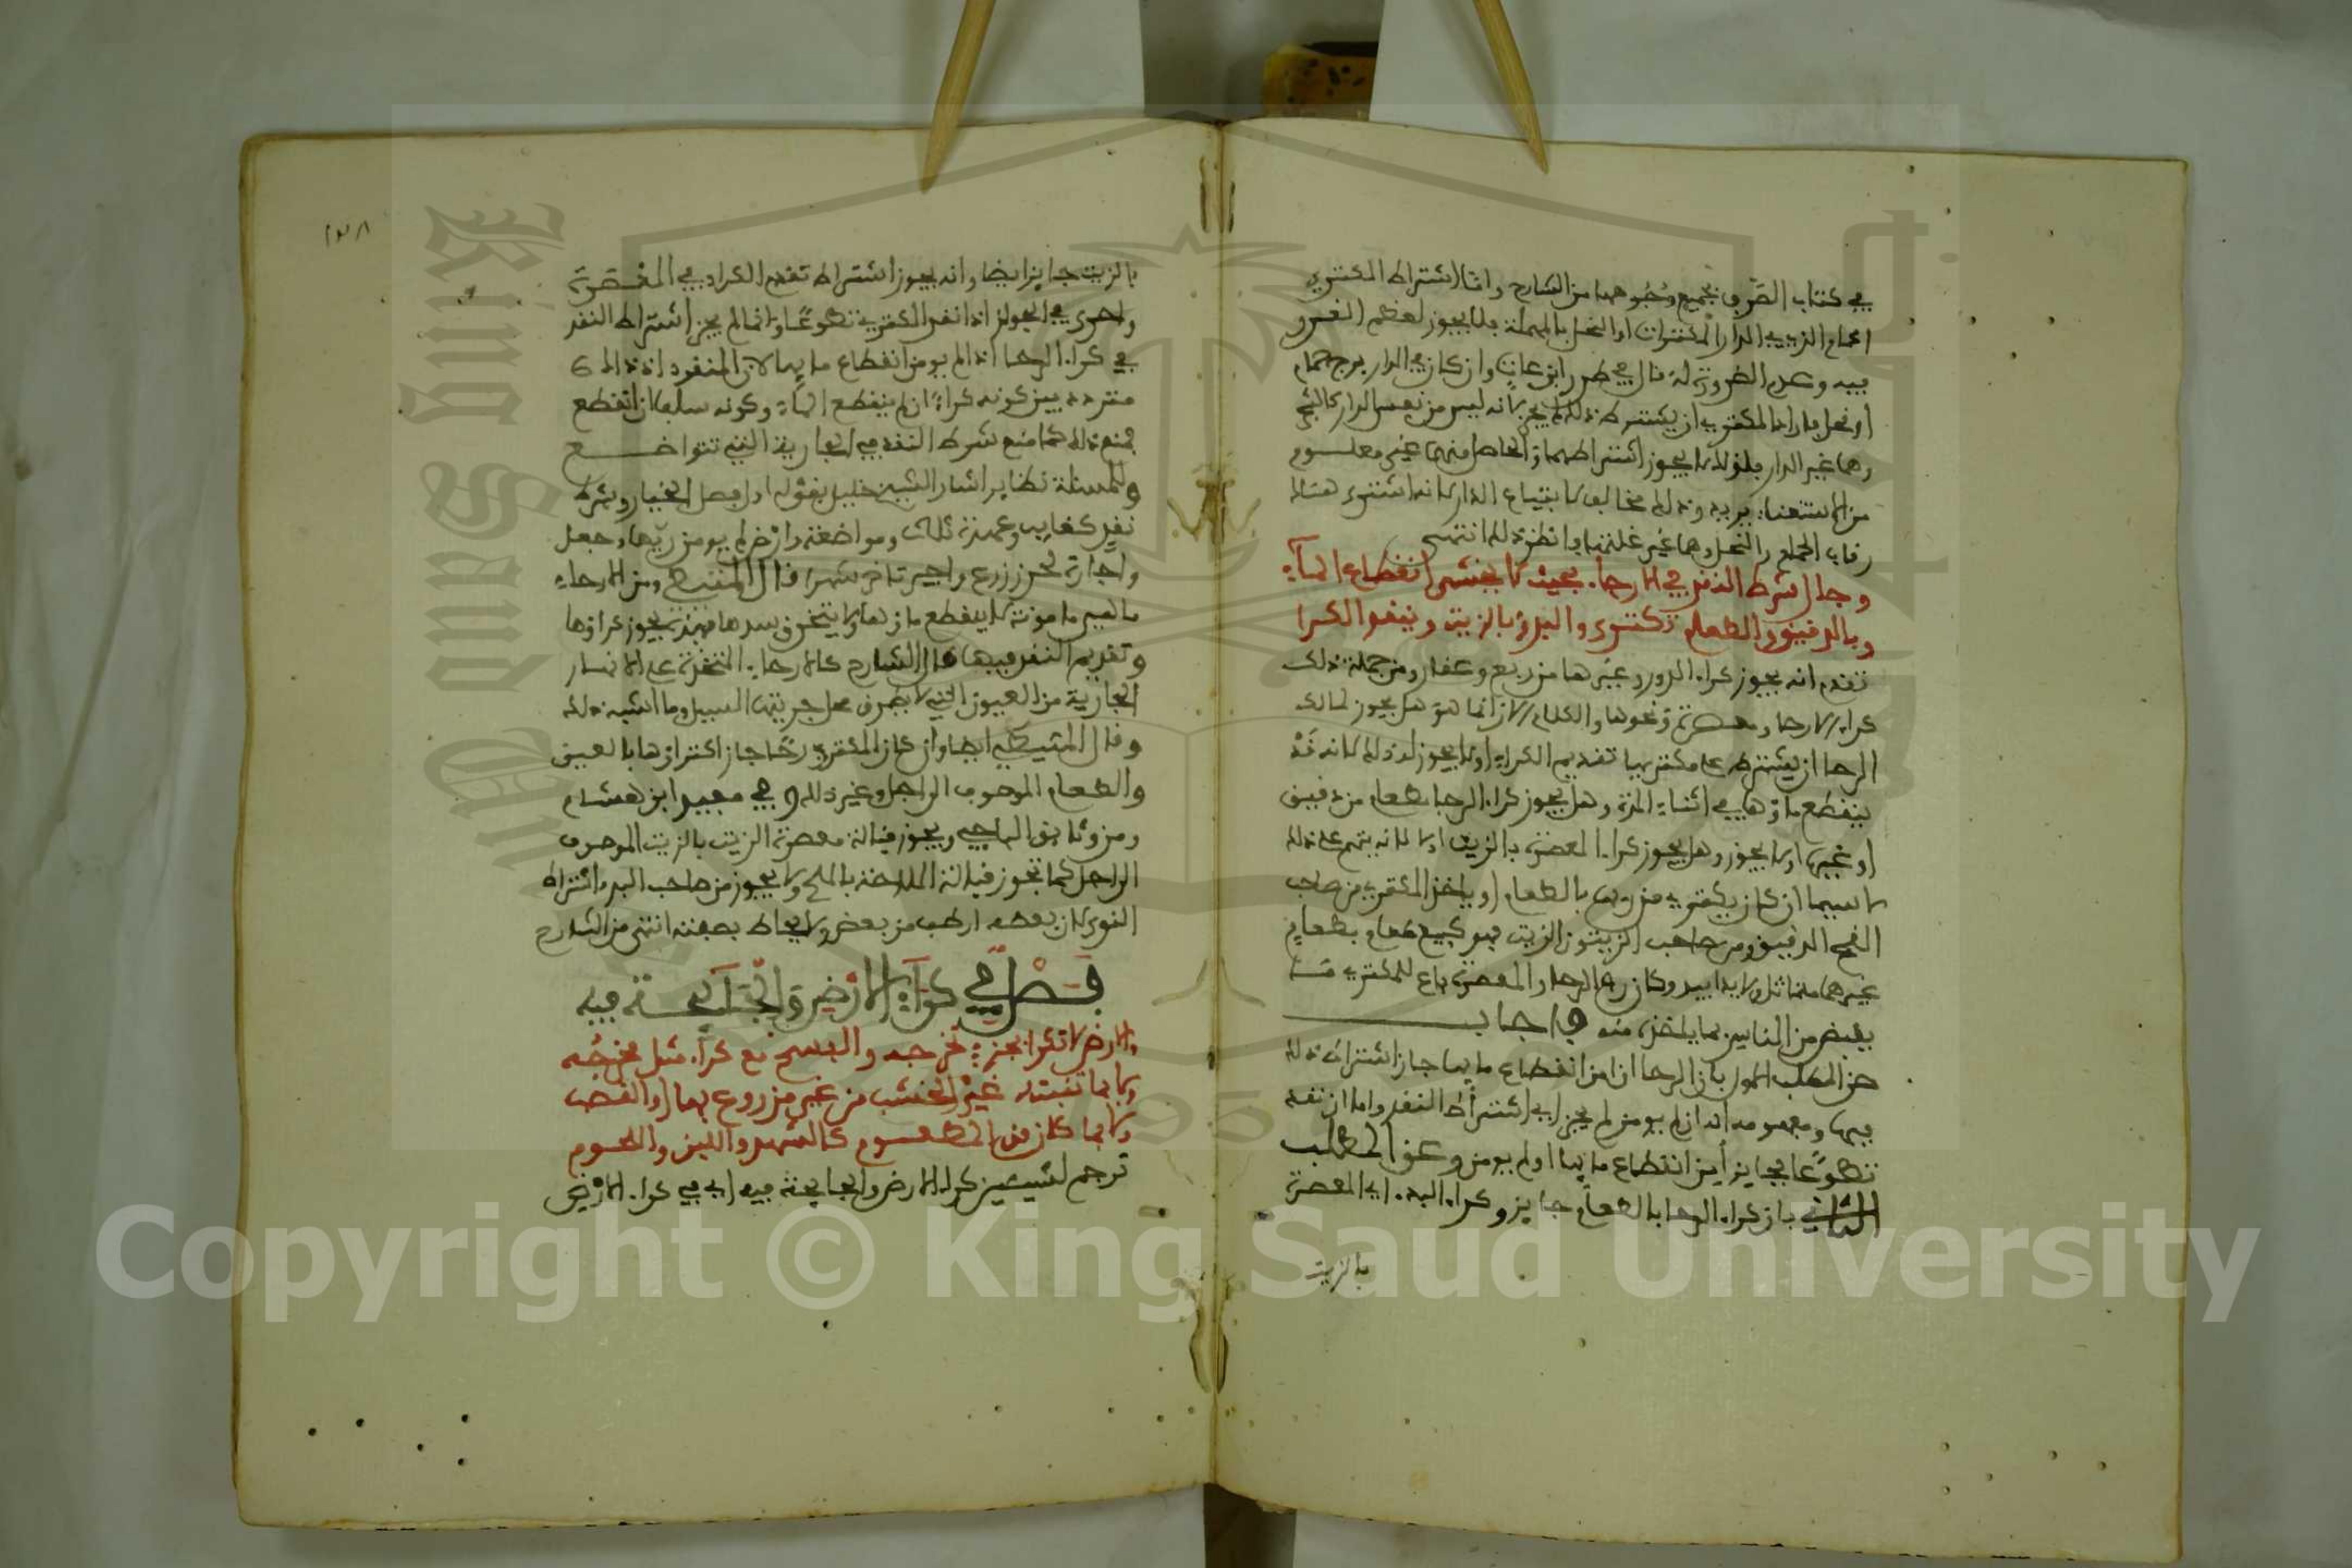 في كتاب الصرف بجميع وجوهها من الشارح وأما اشتراط المكتري
حمام الذي في الدار المكتراة أو النحل بالمهملة فلا يجوز لعظم الغرر
فيه وعدم الضرورة له قال في طرر ابن عات وإن كان في الدار برج حمام
أو نحل فأراد المكتري أن يشترط ذلك لم يجز لأنه ليس من نفس الدار كالشجر
وهما غير الدار فلذلك لا يجوز اشتراطهما إذ الحاصل منهما غير معلوم
يريد وذلك مخالف لابتياع الدار لأنه اشترى هنالك
رقاب الحمام والنحل وهما غير غلتهما وانظر ذلك انتهى
وجاز شرط النقد في الأرحاء بحيث لا يخشى انقطاع الماء
وبالدقيق والطعام تكترى والبد بالزيت وينقد الكرا
تقدم أنه يجوز كراء الدور وغيرها من ربع وعقار ومن جملة ذلك
كراء الأرحاء ومعصرة ونحوها والكلام الآن إنما هو هل يجوز لمالك
الرحا أن يشترط على مكتريها تقديم الكراء أو لا يجوز له ذلك لأنه قد
ينقطع ماؤها في أثناء المدة وهل يجوز كراء الرحا بطعام من دقيق
أو غيره أو لا يجوز وهل يجوز كراء المعصرة بالزيت أو لا لأنه يتهم على ذلك
لا سيما إن كان يكتري من ربها بالطعام أو يأخذ المكتري من صاحب
القمح الدقيق ومن صاحب الزيتون الزيت فهو كبيع طعام بطعام
غير متماثل ولا يدا بيد وكان رب الرحا والمعصرة باع للمكتري ما
يقبض من الناس بما يأخذه منه فأجاب
عن المطلب الأول بأن الرحا إن أمن انقطاع مائها جاز اشتراط ذلك
فيها ومفهومه أنه إن لم يومن لم يجز أي اشتراط النقد وأما إن نقد
تطوعا فجايز أمن انقطاع مائها أو لم يومن وعن المطلب
الثاني بأن كراء الرحا بالطعام جايز وكراء البد أي المعصرة
بالزيت
١٣٨
بالزيت جايز أيضا وأنه يجوز اشتراط تقديم الكراء في المعصرة
وأحرى في الجواز إذا نقد المكتري تطوعا وإنما لم يجز اشتراط النقد
في كراء الرحا إذا لم يومن انقطاع مائها لأن المنقود إذ ذاك
متردد بين كونه كراء إن لم ينقطع الماء وكونه سلفا إن انقطع
فمنع ذلك كما منع شرط النقد في الجارية التي تتواضع
وللمسئلة نظاير أشار الشيخ خليل بقوله أول فصل الخيار وبشرط
نقد كغايب وعهدة ثلاث ومواضعة وأرض لم يومن ريها وجعل
وإجارة لحرز زرع وأجير تأخر شهرا قال المتيطي ومن الأرحاء
ما هي مامونة لا ينقطع ماؤها ولا يتخرق سدها فهذه يجوز كراؤها
وتقديم النقد فيها قال الشارح كالأرحاء المتخذة على الأنهار
الجارية من العيون التي لا بطرف محل جرية السيل وما أشبه ذلك
وقال المتيطي أيضا وإن كان المكترى رحا جاز اكتراؤها بالعين
والطعام الموصوف إلى أجل وغير ذلك وفي مفيد ابن هشام
ومن وثائق الباجي ويجوز قبالة معصرة الزيت بالزيت الموصوف
إلى أجل كما تجوز قبالة الملاحة بالملح ولا يجوز من صاحب البد اشتراط
النوى لأن بعضه أرطب من بعض ولا يحاط بصفته انتهى من الشارح
فصل في كراء الأرض والجائحة فيه
والأرض لا تكرا بجزء تخرجه والفسخ مع كراء مثل مخرجه
ولا بما تنبته غير الخشب من غير مزروع بها أو القصب
ولا بما كان من المطعوم كالشهد واللبن واللحوم
ترجم لشيئين كراء الأرض والجايحة فيه أي في كراء الأرض